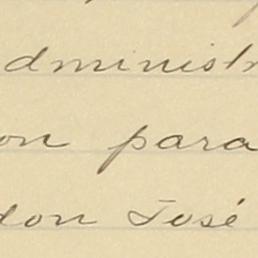 administr
on para
don José